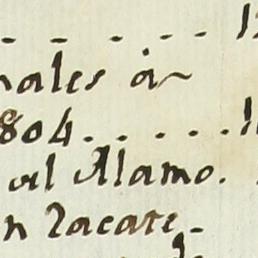 - - - - - - 1
nales à
804. . . . . . 1
al Alamo.
n Zacate-